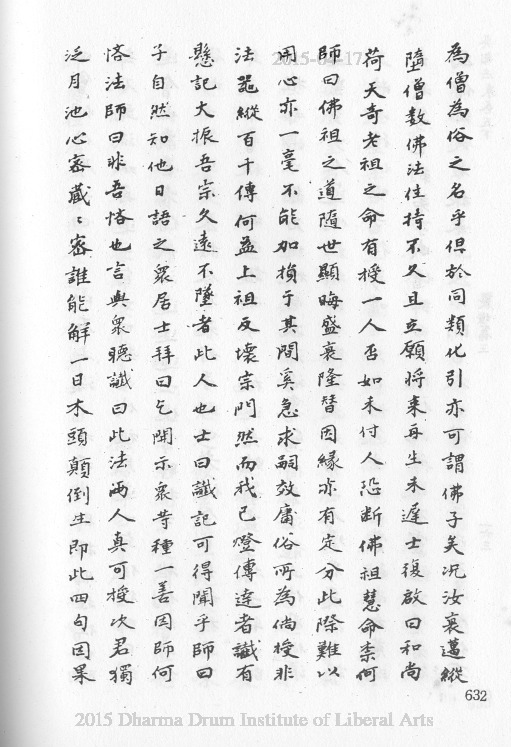 為僧為俗之名乎但於同類化引亦可謂佛子矣况汝衰邁縱
墮僧數佛法住持不久且立願將來再生未遲士復啟曰和尚
荷天奇老祖之命有授一人否如未付人恐斷佛祖慧命柰何
師曰佛祖之道隨世顯晦盛衰隆替因緣亦有定分此際難以
用心亦一毫不能加損于其間奚急求嗣效庸俗所為倘授非
法器縱百千傳何益上祖反壞宗門然而我已燈傳達者讖有
懸記大振吾宗久遠不墜者此人也士曰讖記可得聞乎師曰
子自然知他日語之衆居士拜曰乞開示衆等種一善因師何
悋法師曰非吾悋也言與衆聽讖曰此法兩人真可授次君獨
泛月池心密藏密誰能解一日木頭顛倒生即此四句因果
632
2015-04-17
2015 Dharma Drum Institute of Liberal Arts